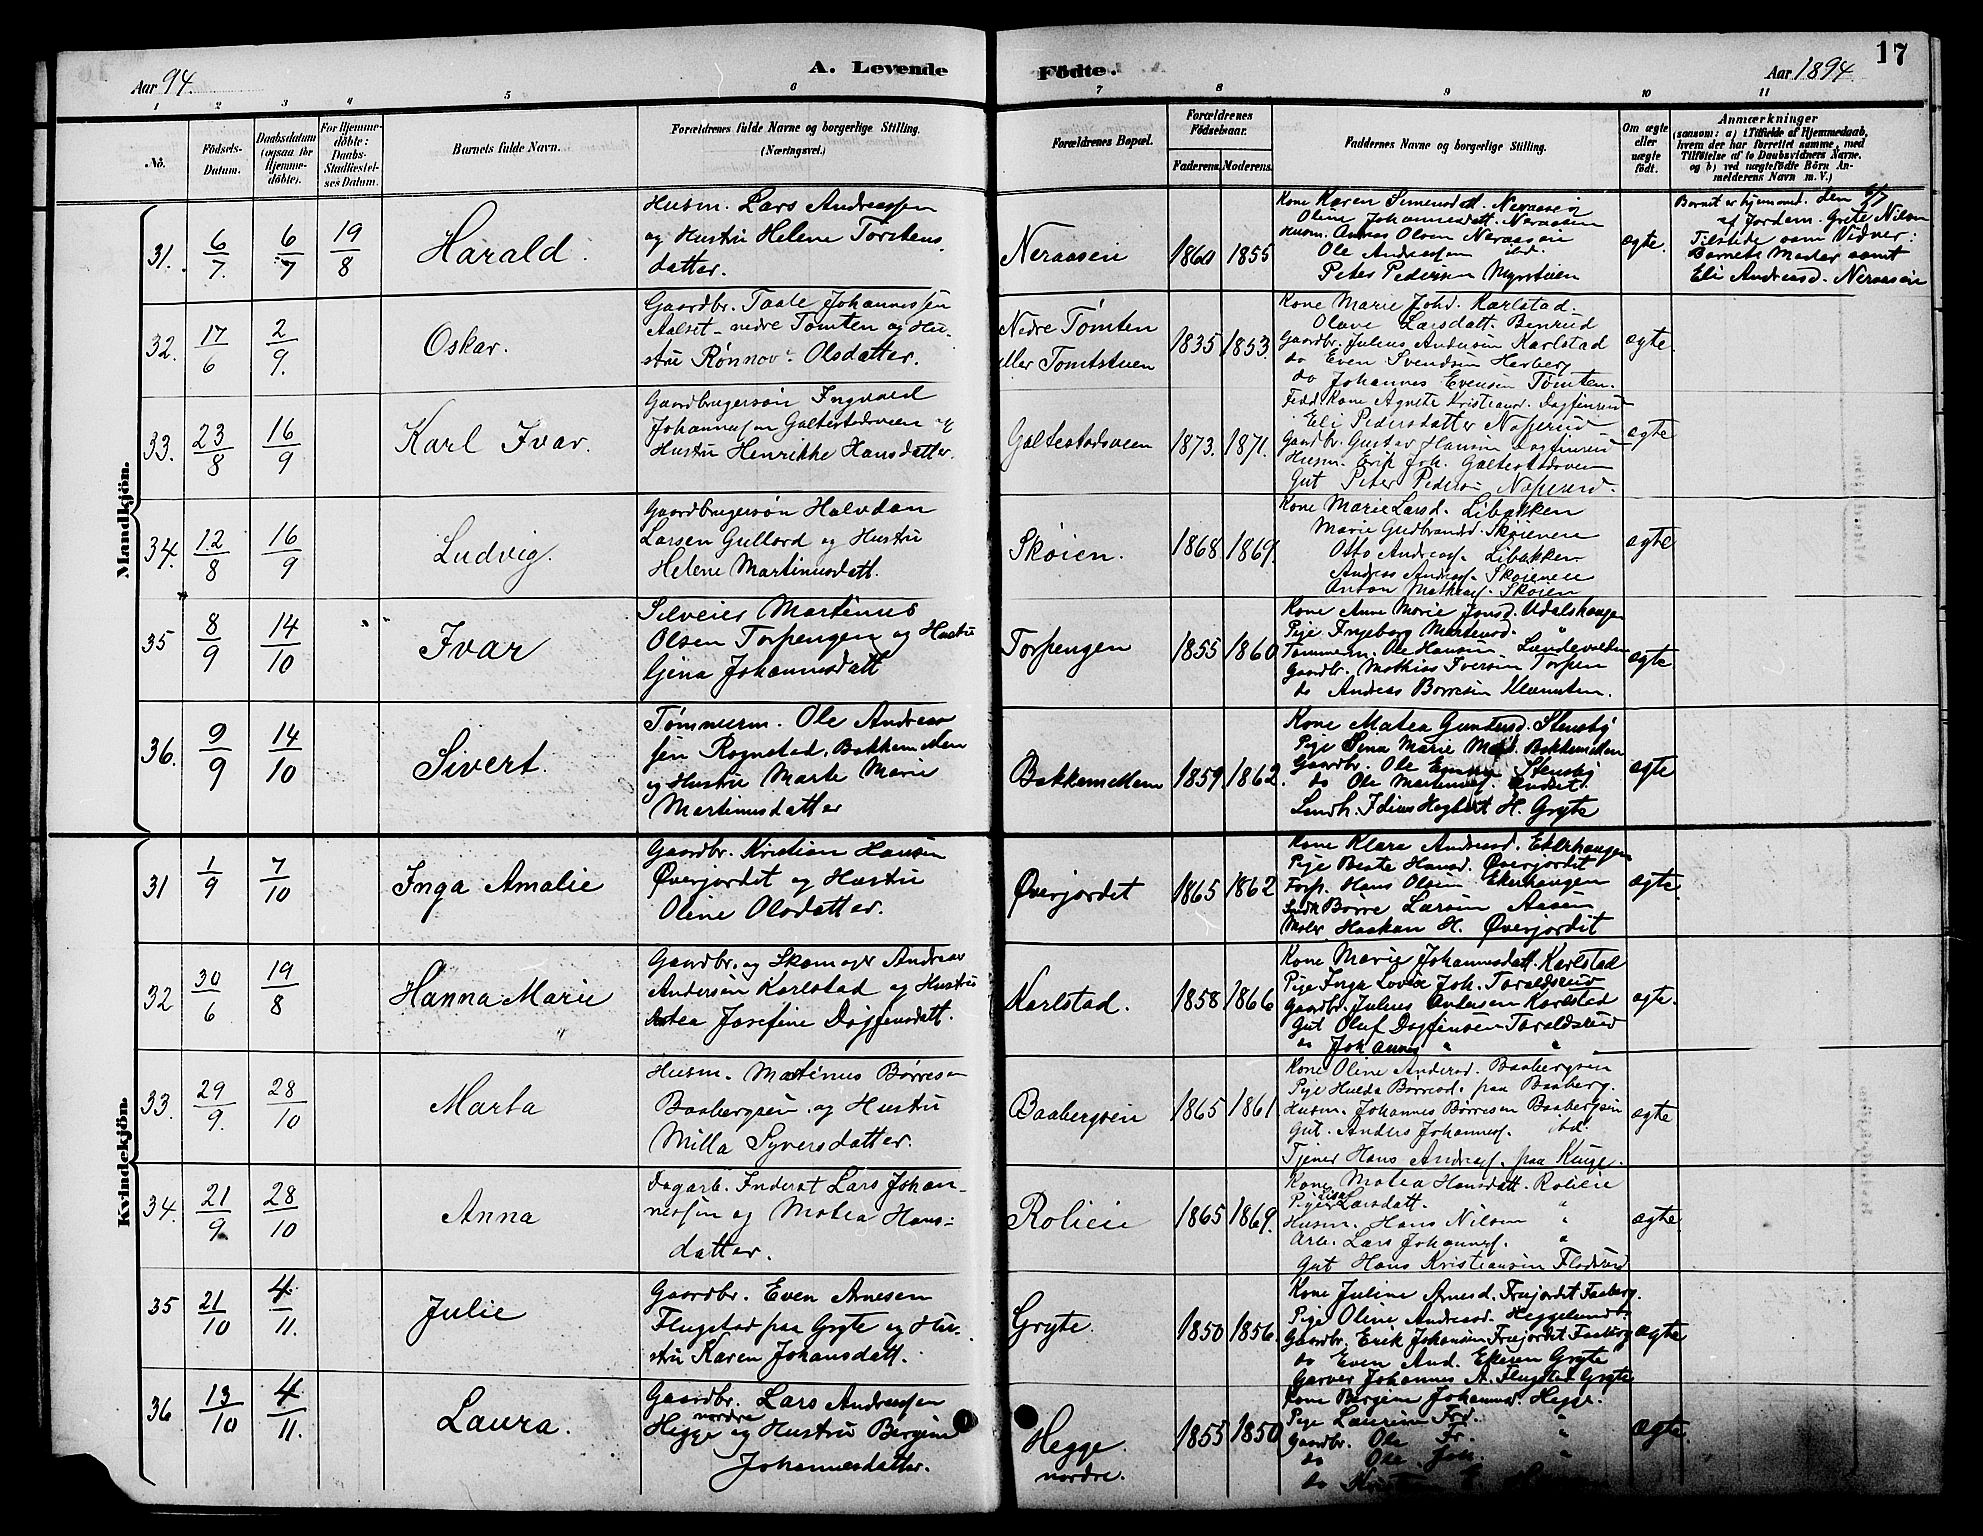 Aar 94.
A. Levende
Fødte.
Aar 1894
17
1 2 3 4 5 6 7 8 9 10 11
No.
Fødsels-
Datum.
Daabsdatum
(ogsaa for
Hjemme-
døbte).
For Hjemme-
døbte:
Daabs-
Stadfæstel-
ses Datum.
Barnets fulde Navn.
Forældrenes fulde Navne og borgerlige Stilling.
(Næringsvei.)
Forældrenes Bopæl.
Forældrenes
Fødselsaar.
Faderens.
Moderens.
Faddernes Navne og borgerlige Stilling.
Om ægte
eller
uægte
født.
Anmærkninger
(saasom: a) i Tilfælde af Hjemmedaab,
hvem der har forrettet samme, med
Tilføielse af to Daabsvidners Navne,
og b) ved uægtefødte Børn An-
melderens Navn m. V.)
Mandkjön.
31.
6/7.
6/7
19/8
Harald.
Husm. Lars Andreassen
og Hustru Helene Torstens
datter.
Neraaseie
1860
1855
Kone Karen Simensdatt. Neraaseie
Oline Johannesdatt. Neraaseie
Husm. Andreas Olsen Neraaseie
Ole Andreassen ibd.
Peter Pedersen Myrstuen
ægte.
Barnet er hjemmed. den 6/7
af Jordem. Grete Nilsen
Tilstede som Vidner:
Barnets Moder samt
Eli Andreasd. Neraaseie
32.
17/6
2/9.
Oskar.
Gaardbr. Taale Johannessen
Aalset - nedre Tømten og Hu-
stru Rønnov Olsdatter.
Nedre Tømten
eller Tomtstuen
1835
1853.
Kone Marie Johd. Karlstad
Olave Larsdatt. Benrud
Gaardbr. Julius Andersen Karlstad
do Even Svendsen Harberg
do Johannes Evensen Tømten.
ægte.
33.
23/8
16/9
Karl Ivar.
Gaardbrugersøn Ingvald
Johannessen Galterstadsveen og
Hustru Henrikke Hansdatter.
Galterstadsveen
1873.
1871.
Fadd. Kone Agnete Kristiansd. Dagfinrud
Eli Pedersdatter Naperud
Gaardbr. Gustav Hansen Dagfinrud
Husm. Erik Joh. Galterstadsveen
Gut Peter Pedersen Naperud.
ægte
34.
12/8
16/9
Ludvig.
Gaardbrugersøn Halvdan
Larsen Gullord og Hustru
Helene Martinusdatt.
Skøien.
1868
1869.
Kone Marie Larsd. Libakken
Marie Gudbrandsd. Skøienen
Otto Andreass. Libakken
Andreas Andreass. Skøienen
Anton Mathiass. Skøien
ægte
35
8/9
14/10
Ivar
Selveier Martinus
Olsen Torpengen og Hustru
Gina Johannesdatt
Torpengen
1855
1860
Kone Anne Marie Jonsd. Udalshaugen
Pige Ingeborg Martinsd.
Tømmerm. Ole Hansen Lundevolden
Gaardbr. Mathias Iversen Torpen
do Andreas Børresen Klemten.
ægte
36.
9/9
14/10
Sivert.
Tømmerm. Ole Andreas
sen Rognstad, Bakkemellem
og Hustru Marte Marie
Martinusdatter
Bakkemellem
1859.
1862.
Kone Matea Gundersd. Stensby
Pige Lina Marie Mart. Bakkemellem
Gaardbr. Ole Stensby
do Ole Martinuss.
H. Gryte
ægte
Kvindekjön.
31
1/9
7/10
Inga Amalie
Gaardbr. Kristian Hansen
Øverjordet og Hustru
Oline Olsdatter.
Øverjordet
1865
1862
Kone Klara Andreasd. Ekerhaugen
Pige Beate Hansd. Øverjordet
Forp. Hans Olsen Ekerhaugen
Smdk Børre Larsen Aasen
Maler Haakon H. Øverjordet
ægte.
32
30/6
19/8
Hanna Marie
Gaardbr. og Skomager Andreas
Andersen Karlstad og Hustru
Matea Josefine Dagfinsdatt.
Karlstad.
1858
1866
Kone Marie Johannesdatt. Karlstad
Pige Inga Lovise Joh. Taraldsrud
Gaardbr. Julius Andersen Karlstad
Gut Oluf Dagfinsen Taraldsrud
do Johannes " "
ægte.
33.
29/9.
28/10
Marta
Husm. Martinus Børresen
Baabergseie og Hustru
Milla Syversdatter.
Baabergseie
1865
1861
Kone Oline Andersd. Baabergseie
Pige Hulda Børresd. paa Baaberg.
Husm. Johannes Børresen Baabergseie
Gut. Anders Johanness. ibd.
Tjener Hans Andreass. paa Kluge.
ægte
34.
21/9
28/10
Anna
Dagarb. Inderst Lars Johan-
nessen og Matea Hans-
datter.
Rolieie
1865
1869.
Kone Matea Hansdatt. Rolieie
Pige Lisa Larsdatt. "
Husm. Hans Nilsen "
Arb. Lars Johanness. "
Gut Hans Kristiansen Fladerud
ægte
35
21/10
4/11.
Julie
Gaardbr. Even Arnesen
Flugstad paa Gryte og Hu-
stru Karen Johansdatt.
Gryte.
1850
1856.
Kone Juline Arnesd. Fruejordet Faaberg.
Pige Oline Andreasd. Heggelund
Gaardbr. Erik Johansen Fruejordet Faaberg
do Even And. Ekeren Gryte
Garver Johannes A. Flugstad Gryte
ægte
36
13/10
4/11.
Laura.
Gaardbr. Lars Andreassen
Hegge nordre og Hustru Bergine
Johannesdatter.
Hegge.
nordre.
1855
1850
Kone Bergine Johannesd. Hegge.
Pige Laurine Frd. "
Gaardbr. Ole Fr. "
do Ole Joh. "
do
ægte.